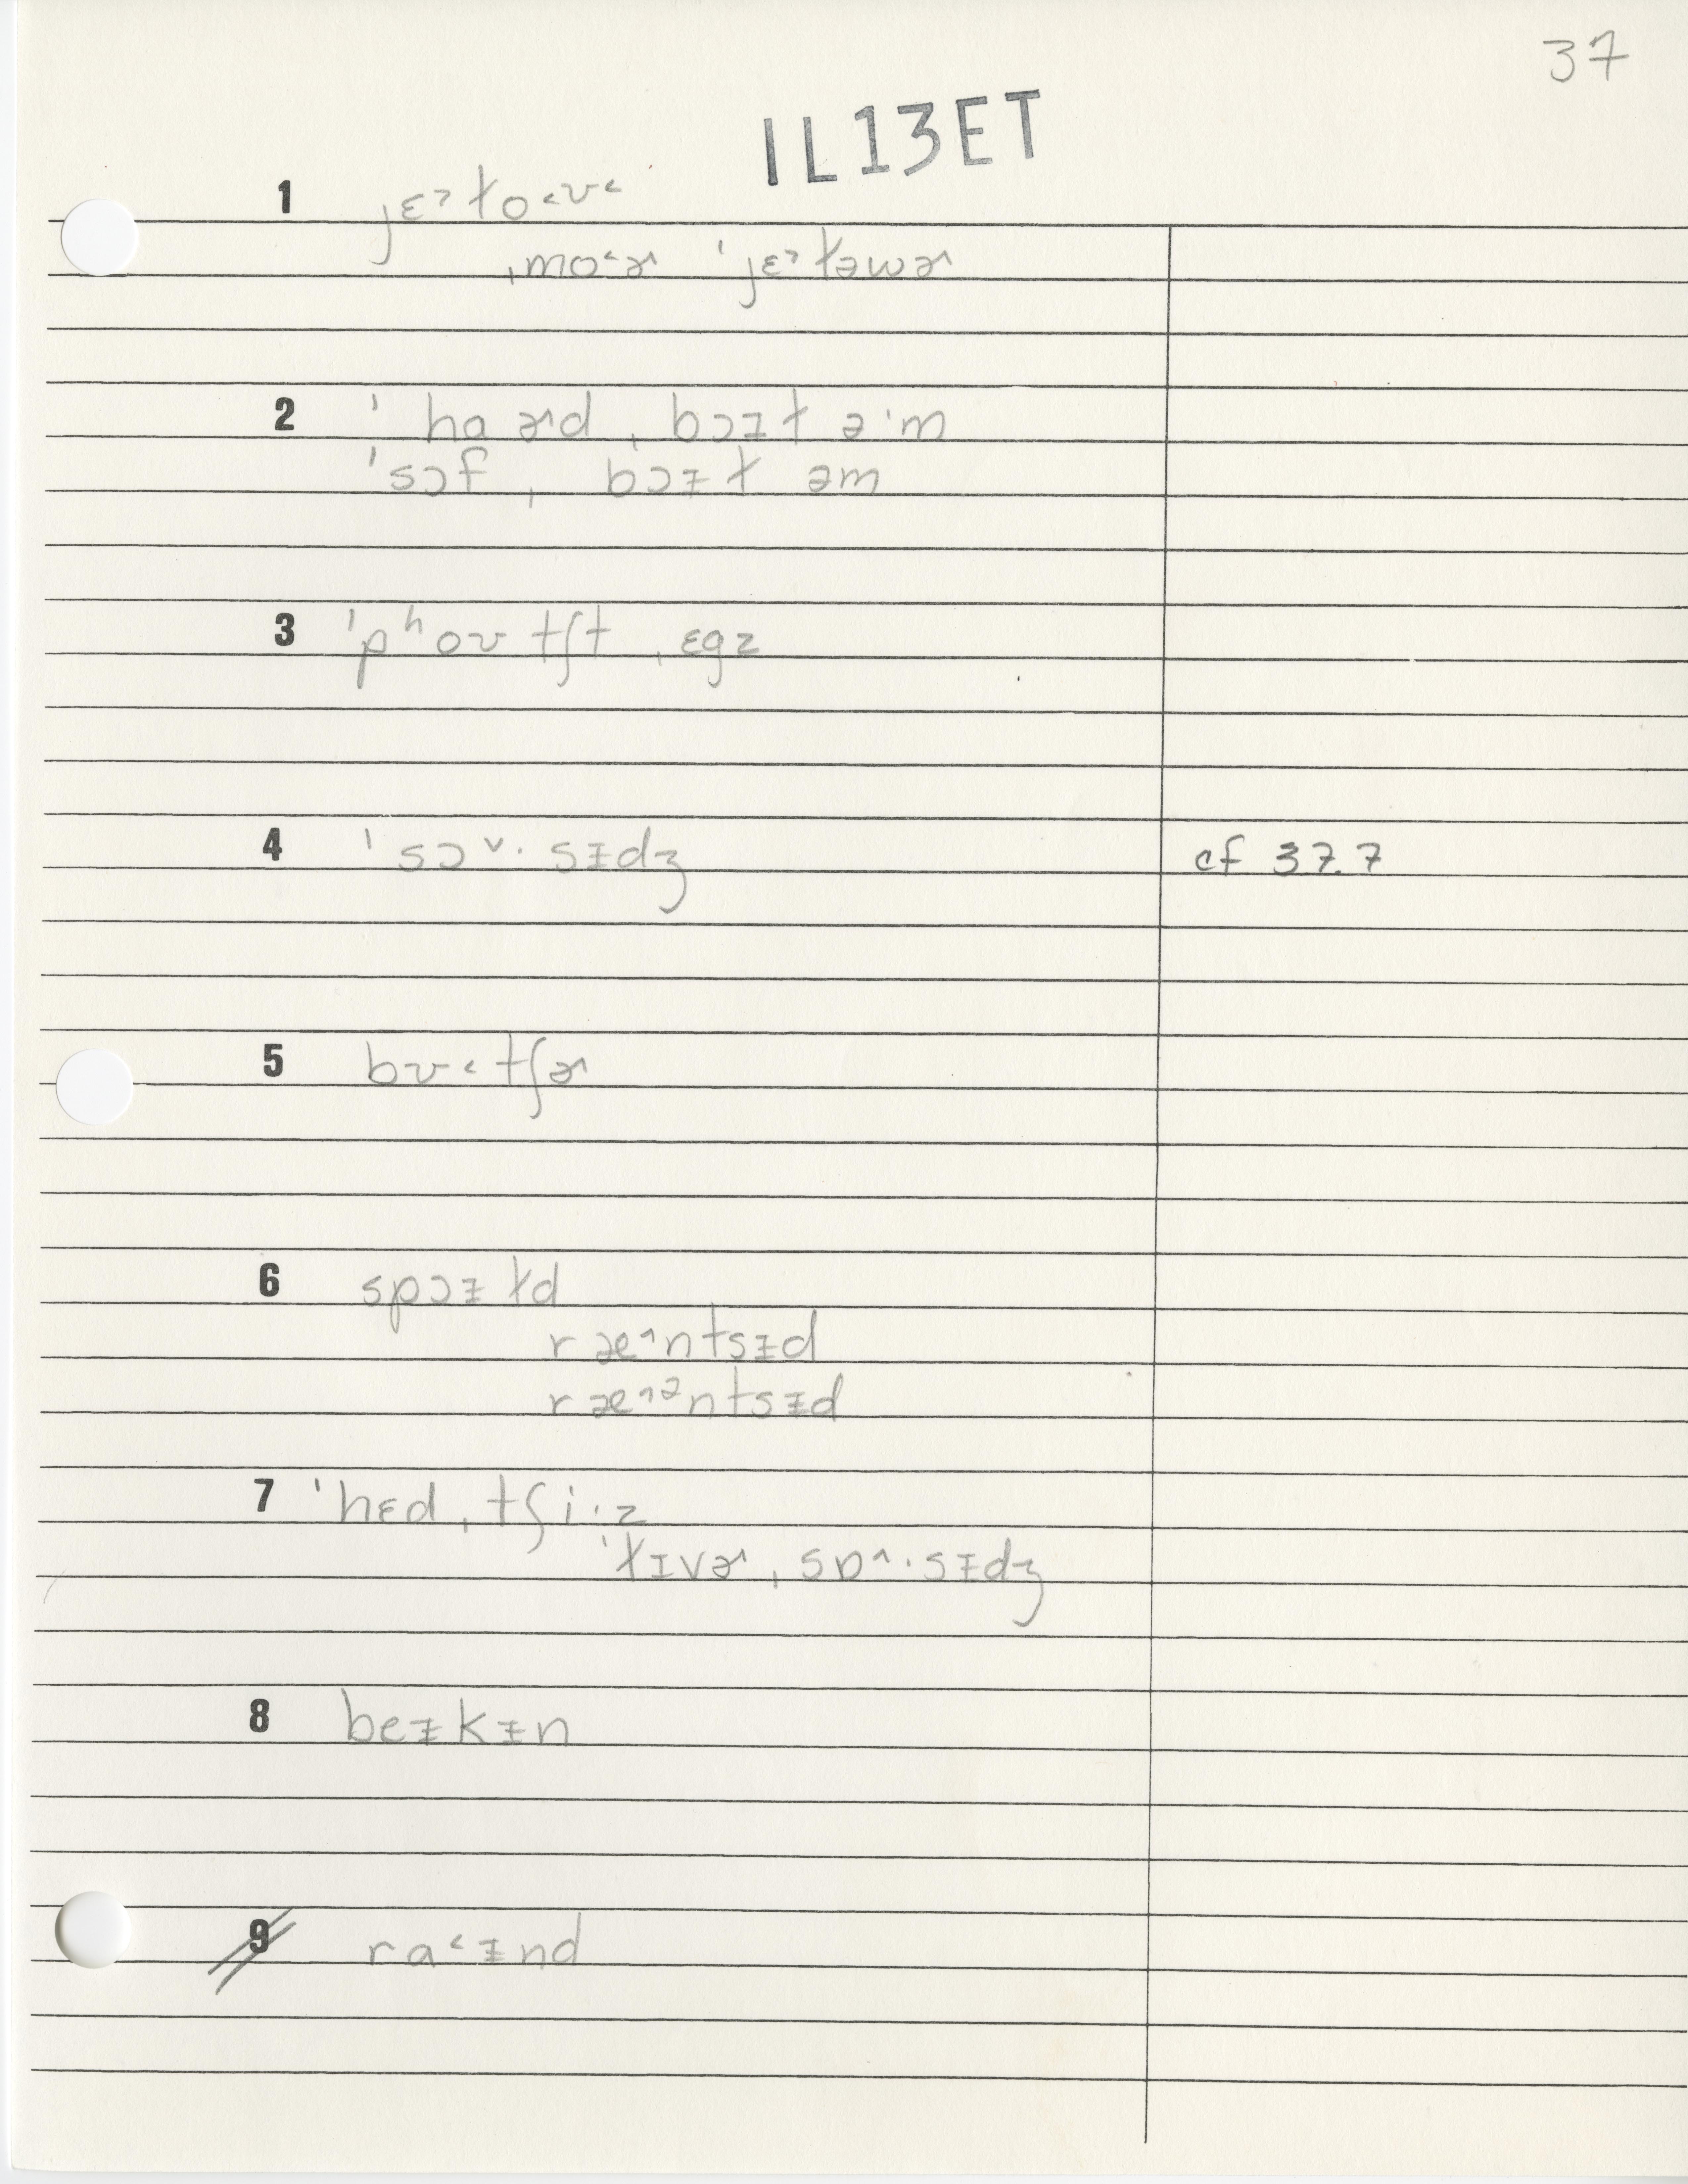 37
IL13ET
1 jɛ˃ɫoʊ˂
ˌmo˂ɚ ˈjɛ˃ɫəwɚ
2 ˈhaɚd ˌbɔᵻɫ ə·m
ˈsɔf ˌbɔᵻɫ əm
3 ˈpʰoʊtʃt ˌɛgz
4 ˈsɔ˅·sᵻdʒ cf 37.7
5 bʊ˂tʃɚ
6 spɔᵻɫd
ræ˄ntsᵻd
ræ˄ᵊntsᵻd
7 ˈhɛd ˌtʃi·z
ˈɫɪvɚ ˌsɒ˄·sᵻdʒ
8 beᵻkᵻn
9 ra˂ᵻnd